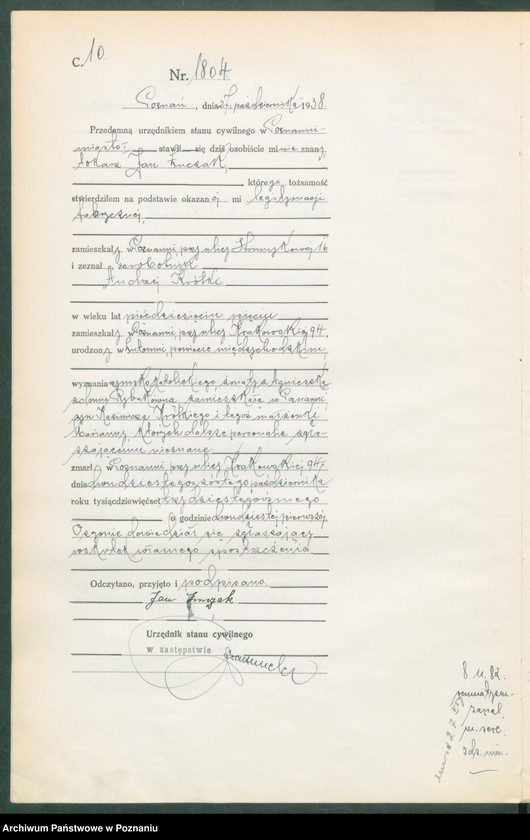 C. 10
Nr. 1804
Poznań, dnia 27 października 1938.
Przedemną urzędnikiem stanu cywilnego w Poznaniu-
miasto stawił się dziś osobiście mi nie znany,
Jan
którego tożsamość
stwierdziłem na podstawie okazanej mi legitymacji
fabrycznej,
zamieszkały w Poznaniu, przy ulicy 16
i zeznał, że robotnik
Andrzej Krótki
w wieku lat pięćdziesięciu pięciu
zamieszkały w Poznaniu, przy ulicy Krakowskiej 94,
urodzony w Lutomiu, powiecie międzychodzkim,
wyznania rzymskokatolickiego, żonaty z Agnieszką
z domu Rybakówną zamieszkałą w Poznaniu,
syn Kazimierza Krótkiego i tegoż małżonki
Marianny, których dalsze personalia zgła-
szającemu nieznane
zmarł w Poznaniu przy ulicy Krakowskiej 94,
dnia dwudziestego szóstego października
roku tysiącdziewięćset trzydziestego ósmego
o godzinie dwudziestej pierwszej.
O zgonie dowiedział się zgłaszający
wskutek własnego spostrzeżenia
Odczytano, przyjęto i podpisano
Jan
Urzędnik stanu cywilnego
w zastępstwie
8. u. 82.
zapal.
m. serc.
Archiwum Państwowe w Poznaniu